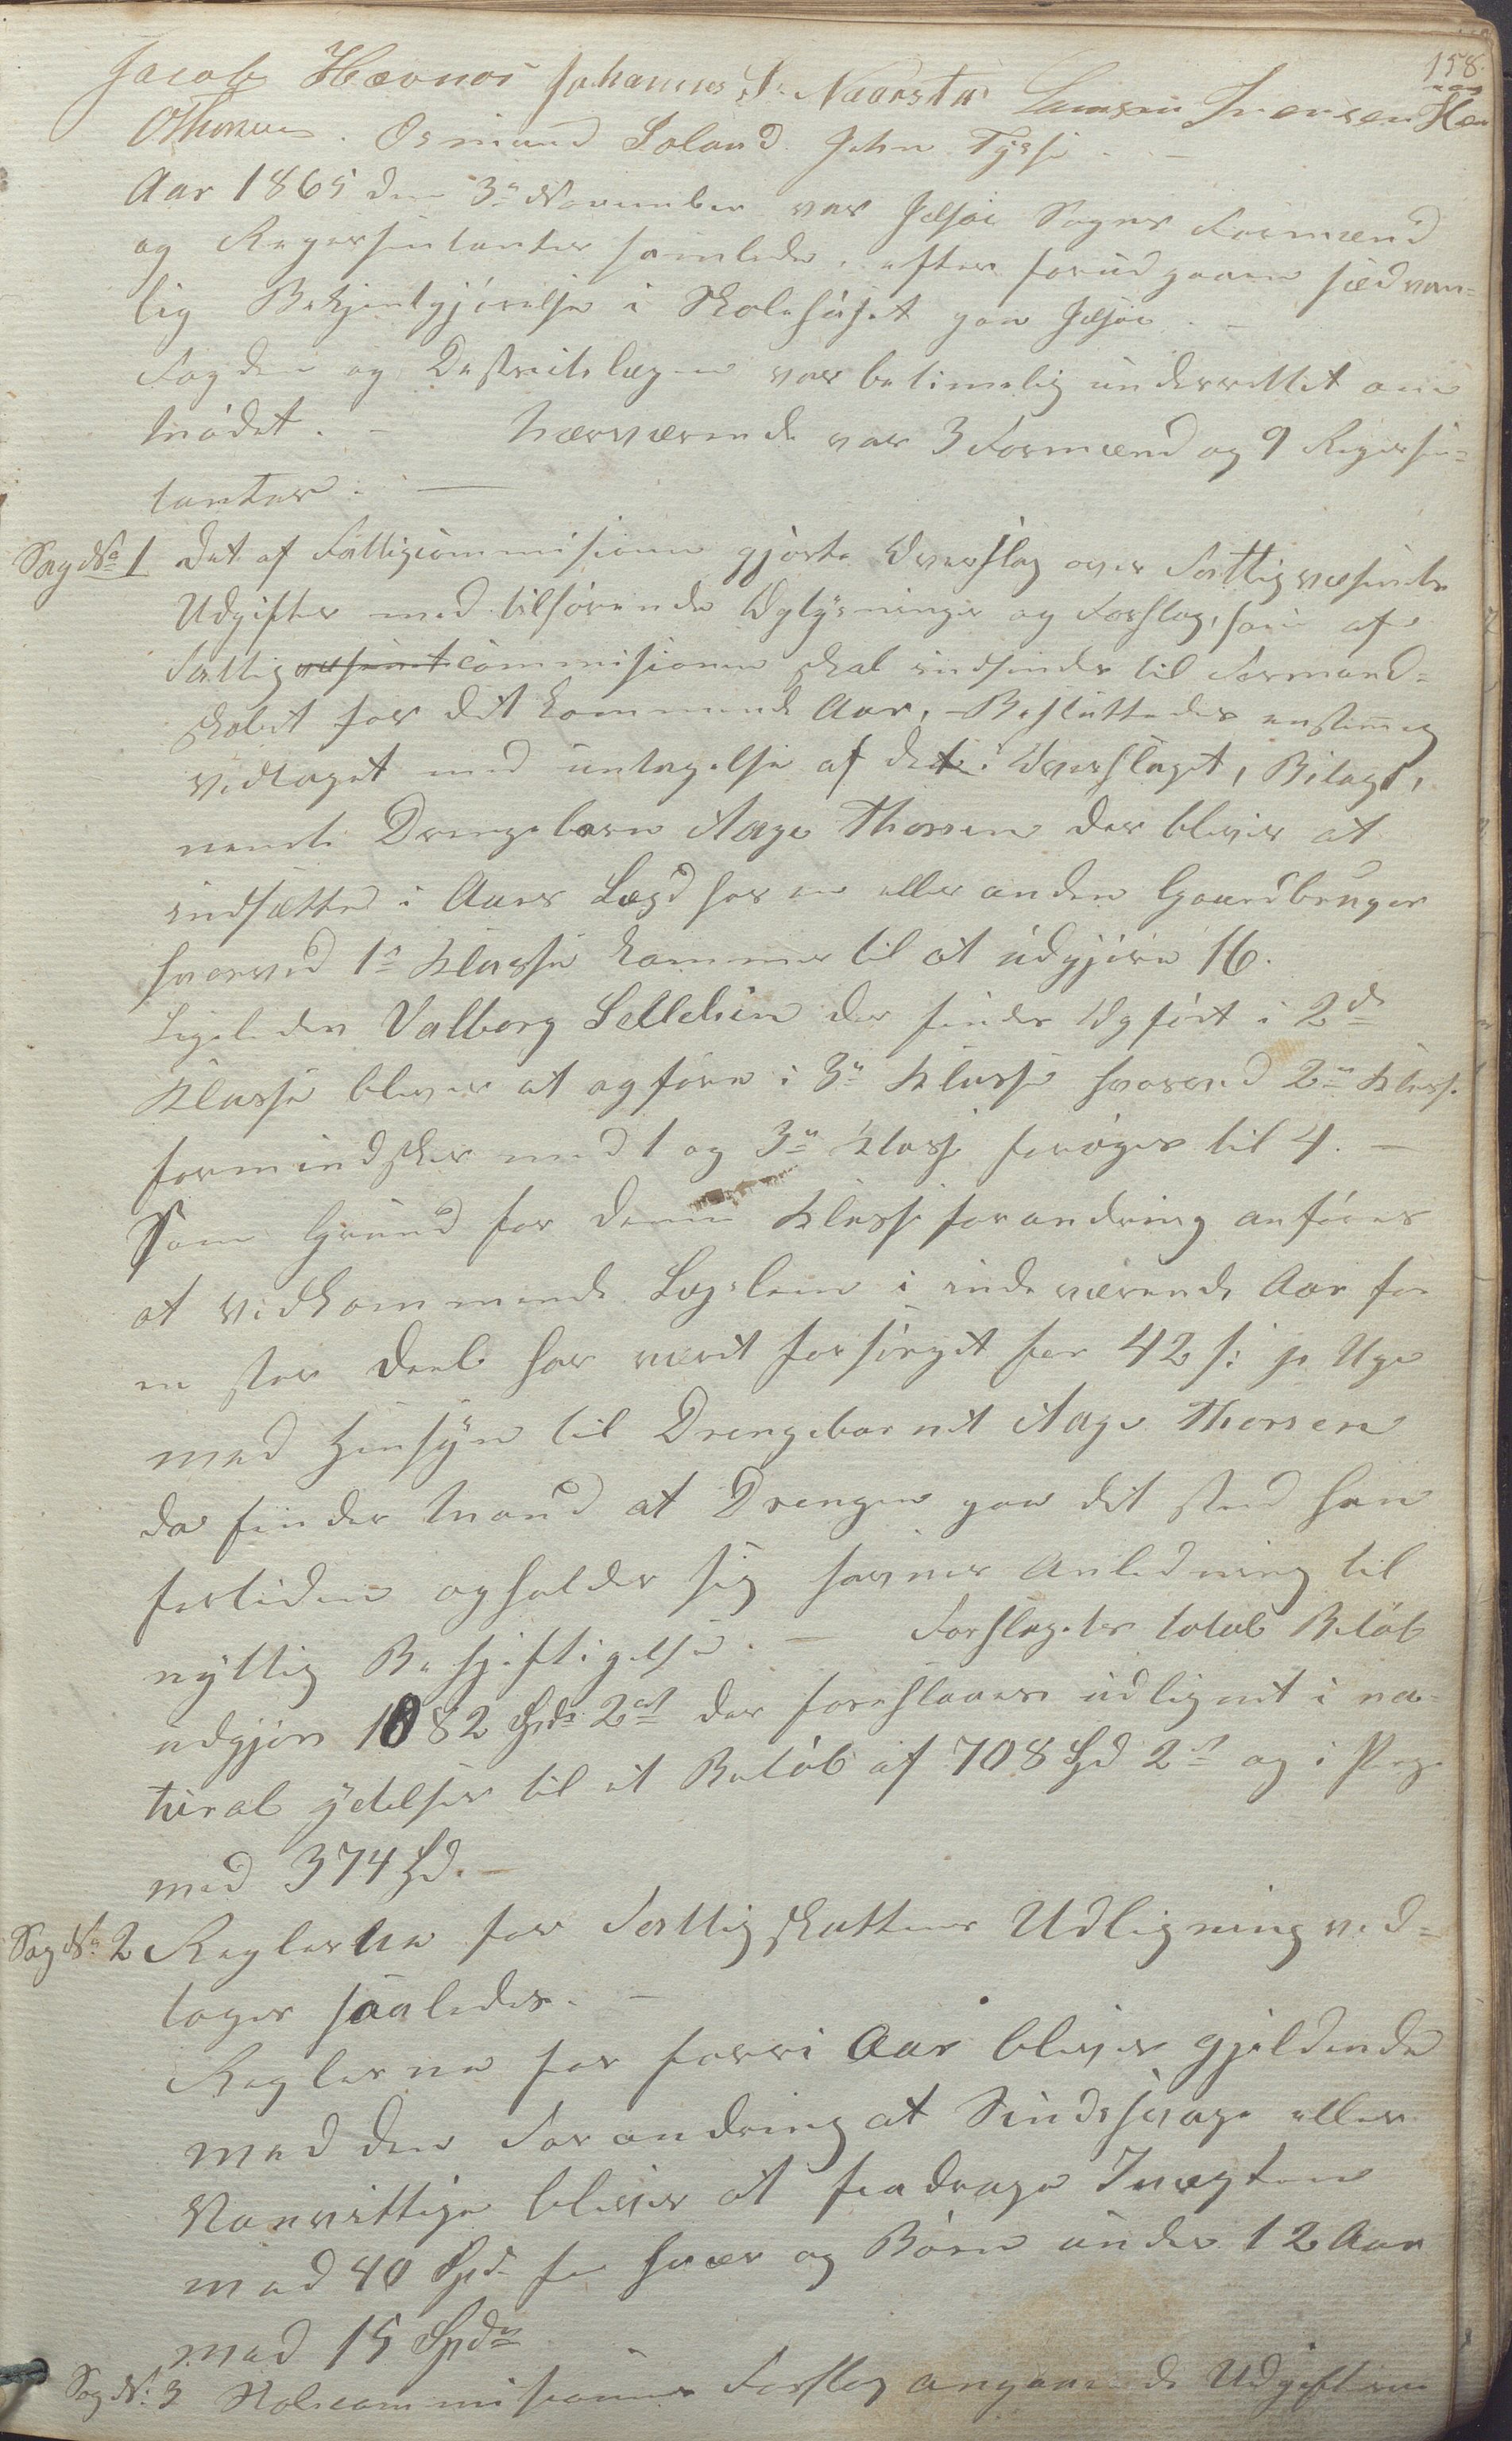 158.
Jacob Hævnøi Johannes J. Naarstad Samson Iversen Hæv
Othonsen. Osmund Soland. John Tysse. –
Aar 1865 den 3die November var Jelsøe Sogns Formænd
og Repræsentanter samlede, efter forudgaaen sædvan-
lig Bekjentgjørelse i Skolehuset paa Jelsøe. –
Fogden og Destrictslægen var betimelig underrettet om
Mødet. – Nærværende var 3 Formænd og 9 Repræsen-
tanter. –
Sag No 1 Det af Fattigcommisionen gjorte Overslag over Fattigvæsenets
Udgifter med tilhørende Oplysninger og Forslag, som af
Fattigvæsenetcommisionen skal indsendes til Formand-
skabet for det kommende Aar, – Besluttedes enstemig
vedtaget med untagelse af det i Overslaget, Bilag 1,
nevnte Drengebarn Aage Thorsen der bliver at
indsætte i Aars Lægd hos en eller anden Gaardbruger
hvorved 1ste Klasse kommer til at udgjøre 16.
Ligeleden Valborg Sellelien der findes Opført i 2den
Klasse bliver at opføre i 3die Klasse hvorved 2den Klasse
formindskes med 1 og 3die Klasse forøges til 4. –
Som Grund for denne Klasseforandring anføres
at vedkommende Lægslem i indeværende Aar for
en stor Deel har været forsørget for 42 s: pr Uge
med Hensyn til Drengebarnet Aage Thorsen
da finder Mand at Drengen paa det sted han
fortiden opholder sig savner Anledning til
nyttig Beskjeftigelse. – Forslagets total Beløb
udgjør 1082 Spd 2ort der foreslaaes udlignet i na-
tural ydelser til et Beløb af 708 Spd 2ort og i Penge
med 374 Spd. –
Sag No 2 Reglerne for Fattigskattens Udligning ved-
toges saaledes. –
Reglerne for forri Aar bliver gjeldende
med den Forandring at Sindssvage eller
Vanvittige bliver at fradrage Indtægten
med 40 Spd for hver og Børn under 12 Aar
med 15 Spd
Sag No 3 Skolecommisionens Forslag angaaende Udgifterne